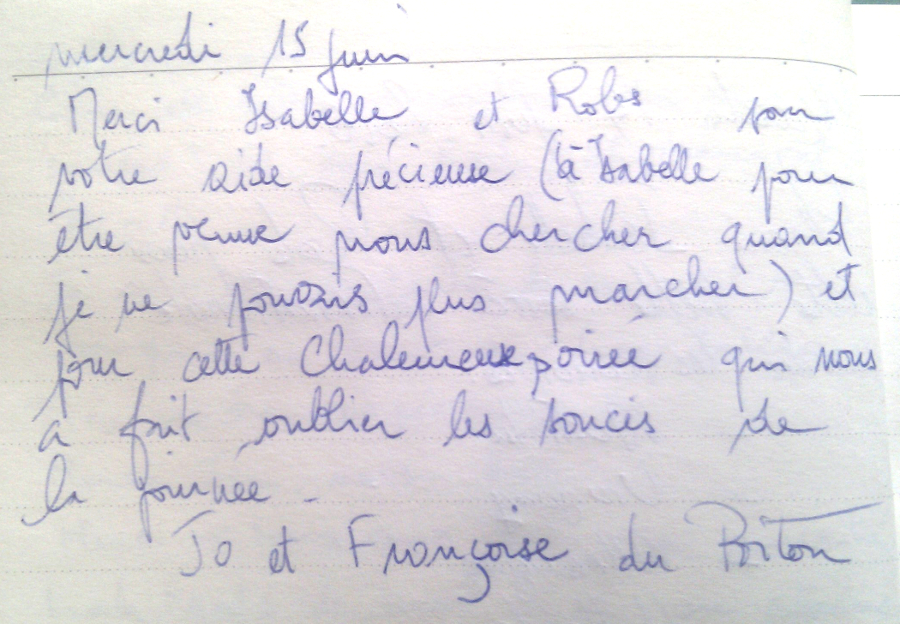 mercredi 15 juin
Merci Isabelle et Robs pour
votre aide précieuse (à Isabelle pour
être venue nous chercher quand
je ne pouvais plus marcher) et
pour cette chaleureuse soirée qui nous
a fait oublier les soucis de
la journée -
Jo et Françoise du Poitou